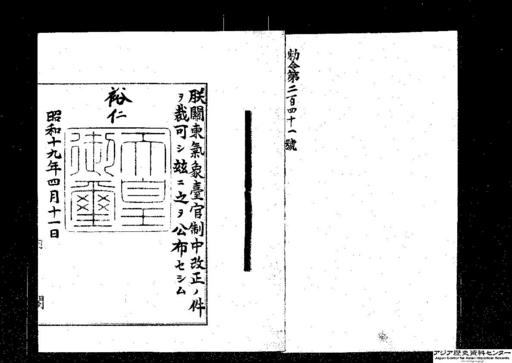 勅令第二百四十一號
朕關東氣象臺官制中改正ノ件
ヲ裁可シ玆ニ之ヲ公布セシム
裕仁
天皇
御璽
昭和十九年四月十一日
内
閣
アジア歴史資料センター
Japan Center for Asian Historical Records